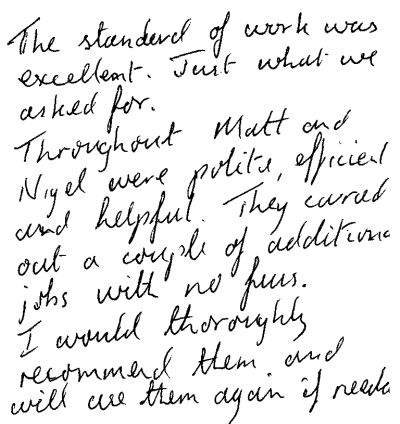 The standard of work was
excellent. Just what we
asked for.
Throughout Matt and
Nigel were polite, efficient
and helpful. They carried
out a couple of additional
jobs with no fuss.
I would thoroughly
recommend them and
will use them again if needed